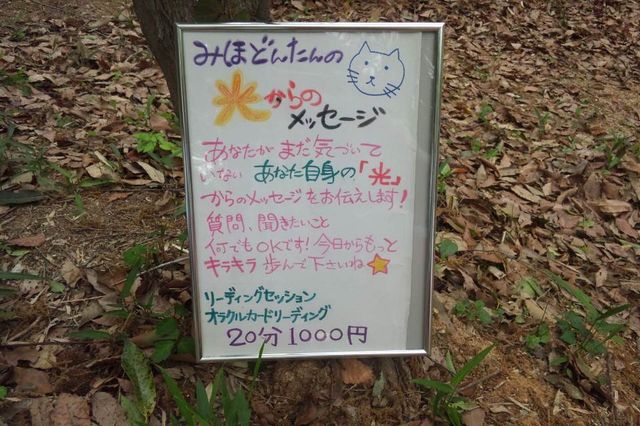 みほどんたんの
光からの
メッセージ
あなたが まだ気づいて
いない あなた自身の「光」
からのメッセージをお伝えします!
質問、聞きたいこと
何でもOKです!今日からもっと
キラキラ 歩んで下さいね
リーディングセッション
オラクルカードリーディング
20分1000円